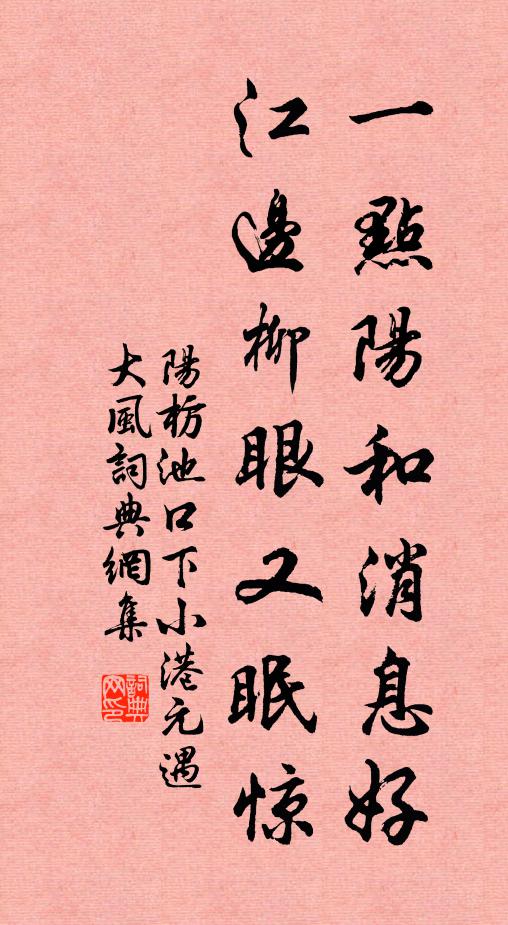 一點陽和消息好
江邊柳眼又眠惊
陽枋池口下小港元遇
大風詞典網集
詞典网印